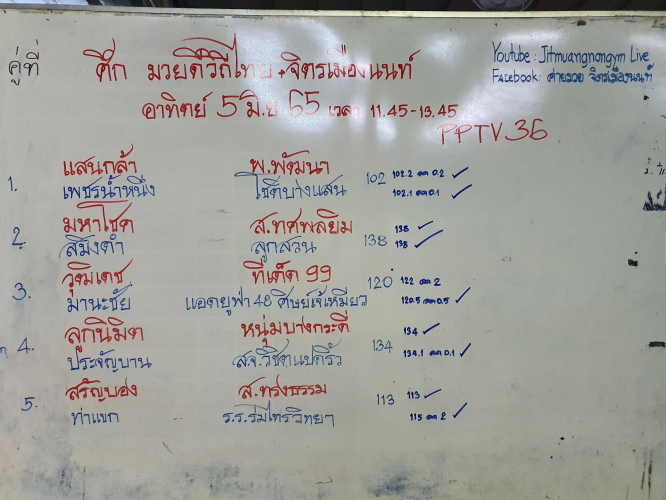 คู่ที่ ศึก มวยดีวิถีไทย + จิตรเมืองนนท์
Youtube : Jitmuangnongym Live
Facebook: ค่ายมวย จิตรเมืองนนท์
อาทิตย์ 5 มิ.ย 65 เวลา 11.45-13.45
PPTV.36
1. แสนกล้า พ.พัฒนา 102 102.2 ลด 0.2 ✓
เพชรน้ำหนึ่ง โชติบางแสน 102.1 ลด 0.1 ✓
2. มหาโชค ส.ทศพลยิม 138 138 ✓
สมิงดำ ลูกสวน 138 ✓
3. วุฒิเดช ที่เด็ด 99 120 122 ลด 2
มานะชัย แอดยูฟ่า 48 ศิษย์เจ้เหมียว 120.5 ลด 0.5 ✓
4. ลูกนิมิต หนุ่มบางกระดี่ 134 134 ✓
ประจัญบาน ส.จ.วิชิตแปดริ้ว 134.1 ลด 0.1 ✓
5. สรัญบอง ส.ทรงธรรม 113 113 ✓
ท่าแขก ร.ร.ร่มไทรวิทยา 115 ลด 2 ✓